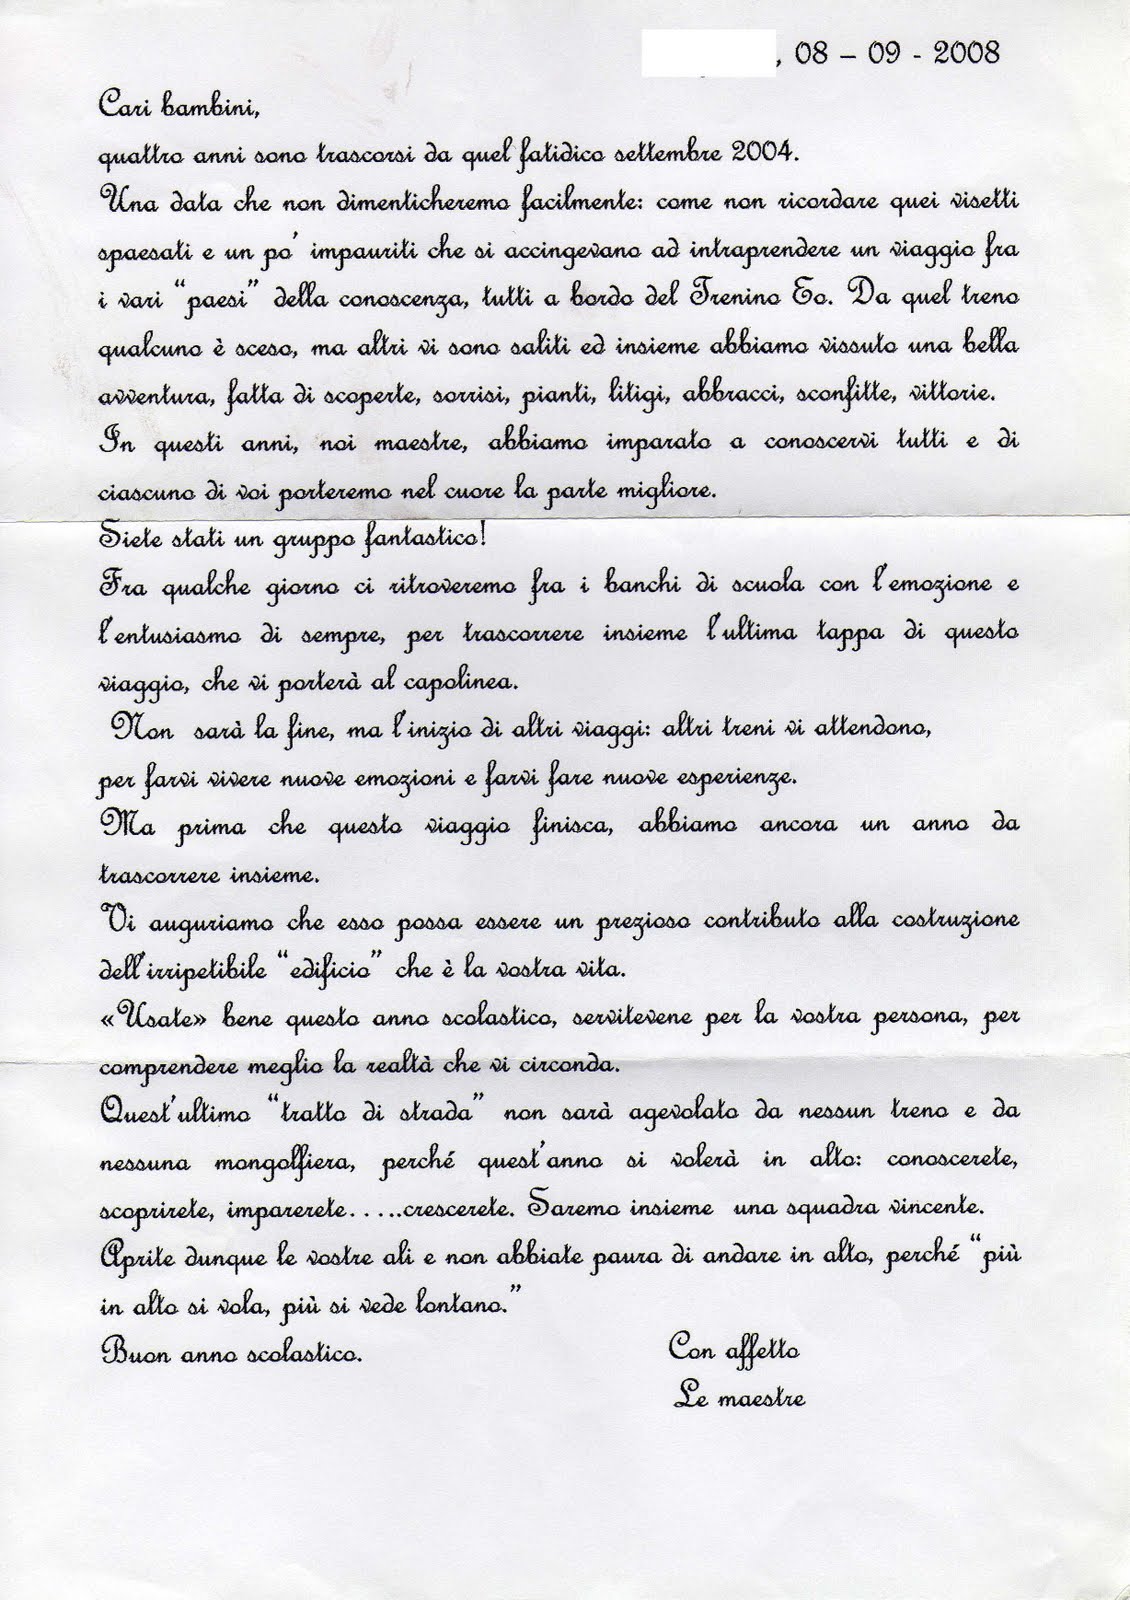 , 08 – 09 - 2008
Cari bambini,
quattro anni sono trascorsi da quel fatidico settembre 2004.
Una data che non dimenticheremo facilmente: come non ricordare quei visetti
spaesati e un po' impauriti che si accingevano ad intraprendere un viaggio fra
i vari “paesi” della conoscenza, tutti a bordo del Trenino Eo. Da quel treno
qualcuno è sceso, ma altri vi sono saliti ed insieme abbiamo vissuto una bella
avventura, fatta di scoperte, sorrisi, pianti, litigi, abbracci, sconfitte, vittorie.
In questi anni, noi maestre, abbiamo imparato a conoscervi tutti e di
ciascuno di voi porteremo nel cuore la parte migliore.
Siete stati un gruppo fantastico!
Fra qualche giorno ci ritroveremo fra i banchi di scuola con l'emozione e
l'entusiasmo di sempre, per trascorrere insieme l'ultima tappa di questo
viaggio, che vi porterà al capolinea.
Non sarà la fine, ma l'inizio di altri viaggi: altri treni vi attendono,
per farvi vivere nuove emozioni e farvi fare nuove esperienze.
Ma prima che questo viaggio finisca, abbiamo ancora un anno da
trascorrere insieme.
Vi auguriamo che esso possa essere un prezioso contributo alla costruzione
dell'irripetibile “edificio” che è la vostra vita.
«Usate» bene questo anno scolastico, servitevene per la vostra persona, per
comprendere meglio la realtà che vi circonda.
Quest'ultimo “tratto di strada” non sarà agevolato da nessun treno e da
nessuna mongolfiera, perché quest'anno si volerà in alto: conoscerete,
scoprirete, imparerete.....crescerete. Saremo insieme una squadra vincente.
Aprite dunque le vostre ali e non abbiate paura di andare in alto, perché “più
in alto si vola, più si vede lontano.”
Buon anno scolastico. Con affetto
Le maestre